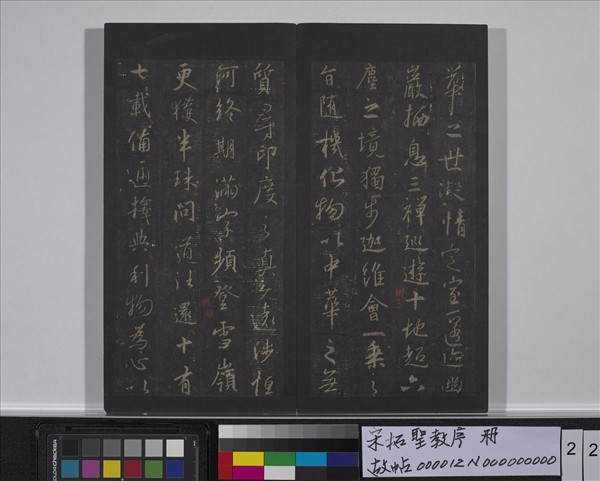 華之世凝情定室匿迹幽
巖栖息三禪巡遊十地超六
塵之境獨步迦維會一乘之
旨随機化物以中華之无
質尋印度之真文遠涉恒
河終期滿字頻登雪嶺
更獲半珠問道往還十有
七載備通釋典利物為心以
宋拓聖教序 冊
故帖000012N000000000
2 2